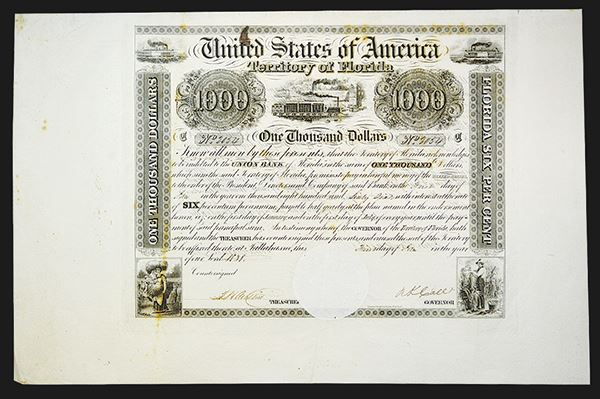 United States of America
Territory of Florida
1000
1000
ONE THOUSAND DOLLARS
FLORIDA SIX PER CENT
One Thousand Dollars
Know all men by these presents, that the Territory of Florida acknowledges
to be indebted to the UNION BANK of Florida in the sum of ONE THOUSAND Dollars
which sum the said Territory of Florida promises to pay in lawful money of the
to the order of the President Directors and Company of said Bank on the First day of
in the year one thousand eight hundred and Sixty with interest at the rate
SIX per centum per annum, payable half yearly at the place named in the endorsement
hereon, viz: on the first day of January and on the first day of July of every year until the pay
ment of said principal sum. In testimony whereof the GOVERNOR of the Territory of Florida hath
signed and the TREASURER has countersigned these presents and caused the seal of the Territory
to be affixed thereto at Tallahassee, this First day of in the year
of our Lord 1838.
Countersigned
TREASURER
R K Call
GOVERNOR